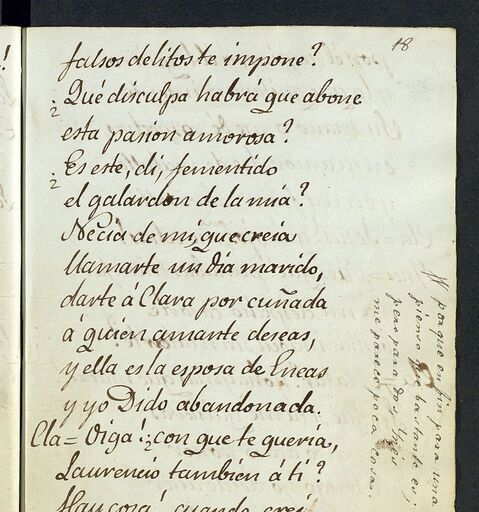 18
falsos delitos te impone?
¿Qué disculpa habrá que abone
esta pasion amorosa?
¿Es este, di, fementido
el galardon de la mia?
Necia de mi, que creia
llamarte un dia marido,
darte á Clara por cuñada
á quien amante deseas,
y ella es la esposa de Eneas
y yo Dido abandonada.
Cla= Oiga! ¿con que te queria,
Laurencio tambien á ti?
Hay cosa! cuando crei
porque en fin para una
pienso que bastante es;
pero para dos Ynés
me parece poca cosa.